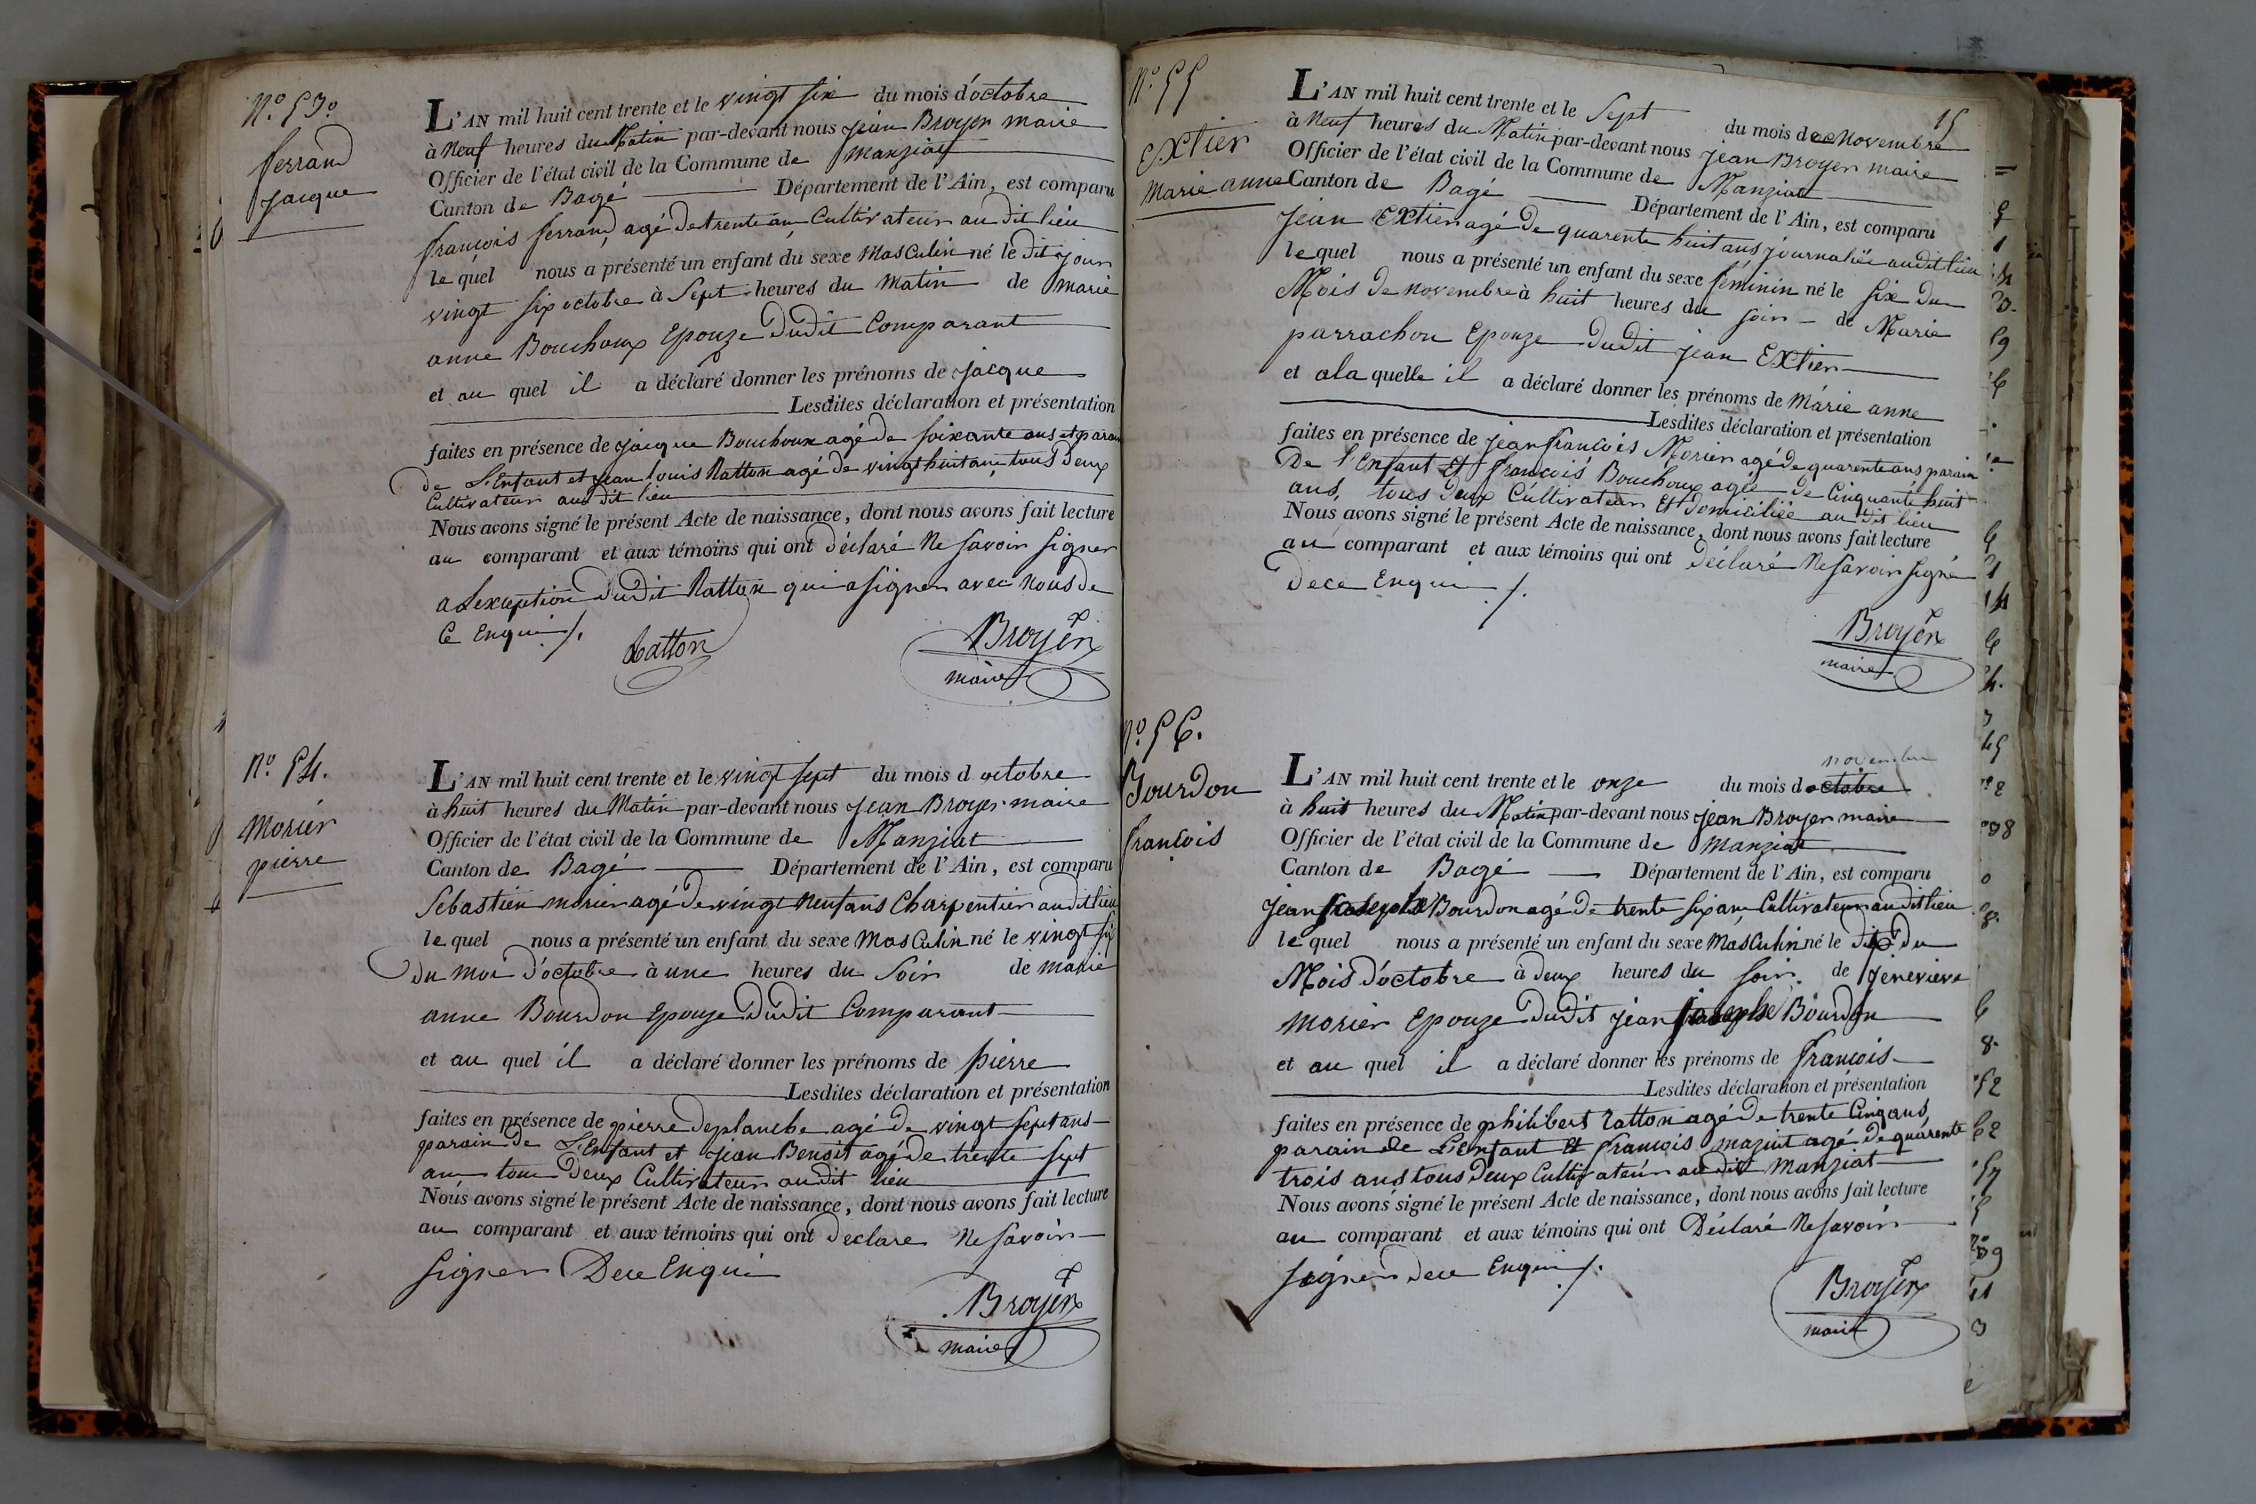 N.o 53.o
ferrand
jacque
L'AN mil huit cent trente et le vingt six du mois d'octobre
à neuf heures du Matin par-devant nous jean Broyer maire
Officier de l'état civil de la Commune de Manziat
Canton de Bagé Département de l'Ain, est comparu
françois ferrand, agé de trente an, Cultivateur au dit lieu
le quel nous a présenté un enfant du sexe masculin né le dit jour
vingt six octobre à Sept heures du matin de marie
anne Bouchoux Epouze dudit Comparant
et au quel il a déclaré donner les prénoms de jacque
Lesdites déclaration et présentation
faites en présence de jacque Bouchoux agé de soixante ans et parain
de L'Enfant et jean louis Ratton agé de vingt huit ans tous deux
Cultivateur au dit lieu
Nous avons signé le présent Acte de naissance, dont nous avons fait lecture
au comparant et aux témoins qui ont déclaré Ne savoir signer
a Lexception dudit Ratton qui a signer avec nous de
Ce Enqui /.
Ratton
Broyer
maire
N.o 54.
morier
pierre
L'AN mil huit cent trente et le vingt sept du mois d octobre
à huit heures du Matin par-devant nous jean Broyer maire
Officier de l'état civil de la Commune de Manziat
Canton de Bagé Département de l'Ain, est comparu
Sebastien morier agé de vingt neuf ans Charpentier au dit lieu
le quel nous a présenté un enfant du sexe masculin né le vingt six
du moi d'octobre à une heures du Soir de marie
anne Bourdon Epouze dudit Comparant
et au quel il a déclaré donner les prénoms de pierre
Lesdites déclaration et présentation
faites en présence de pierre deplanche agé de vingt sept ans
parain de L'Enfant et jean Benoit agé de trente sept
an tous deux Cultivateur au dit lieu
Nous avons signé le présent Acte de naissance, dont nous avons fait lecture
au comparant et aux témoins qui ont declare Ne savoir
signer Dece Enqui
Broyer
maire
15
N.o 55
Extier
Marie anne
L'AN mil huit cent trente et le Sept du mois de Novembre
à Neuf heures du Matin par-devant nous jean Broyer maire
Officier de l'état civil de la Commune de Manziat
Canton de Bagé Département de l'Ain, est comparu
jean Extier agé de quarente huit ans journalié au dit lieu
le quel nous a présenté un enfant du sexe féminin né le six du
Mois de novembre à huit heures du soir de Marie
parrachon Epouze dudit jean Extier
et a la quelle il a déclaré donner les prénoms de Marie anne
Lesdites déclaration et présentation
faites en présence de jean francois Morier agé de quarente ans parain
De l'Enfant Et francois Bouchoux agée de Cinquante huit
ans, tous deux Cultivateur Et domiciliée au dit lieu
Nous avons signé le présent Acte de naissance, dont nous avons fait lecture
au comparant et aux témoins qui ont déclaré Ne savoir signé
Dece Enqui /.
Broyer
maire
N.o 56.
Bourdon
francois
novembre
L'AN mil huit cent trente et le onze du mois d octobre
à huit heures du Matin par-devant nous jean Broyer maire
Officier de l'état civil de la Commune de Manziat
Canton de Bagé Département de l'Ain, est comparu
jean joseph Bourdon agé de trente six an, Cultivateur au dit lieu
le quel nous a présenté un enfant du sexe masculin né le dix du
Mois d'octobre à deux heures du soir de jenevieve
morier Epouze dudit jean joseph Bourdon
et au quel il a déclaré donner les prénoms de francois
Lesdites déclaration et présentation
faites en présence de philibert ratton agé de trente Cinq ans,
parain de L'Enfant Et francois maziut agé de quarente
trois ans tous deux Cultivateur au dit manziat
Nous avons signé le présent Acte de naissance, dont nous avons fait lecture
au comparant et aux témoins qui ont Déclaré Ne savoir
signer dece Enqui /.
Broyer
maire